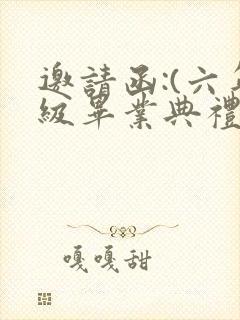 邀請函:(六年
級畢業典禮
嘎嘎甜